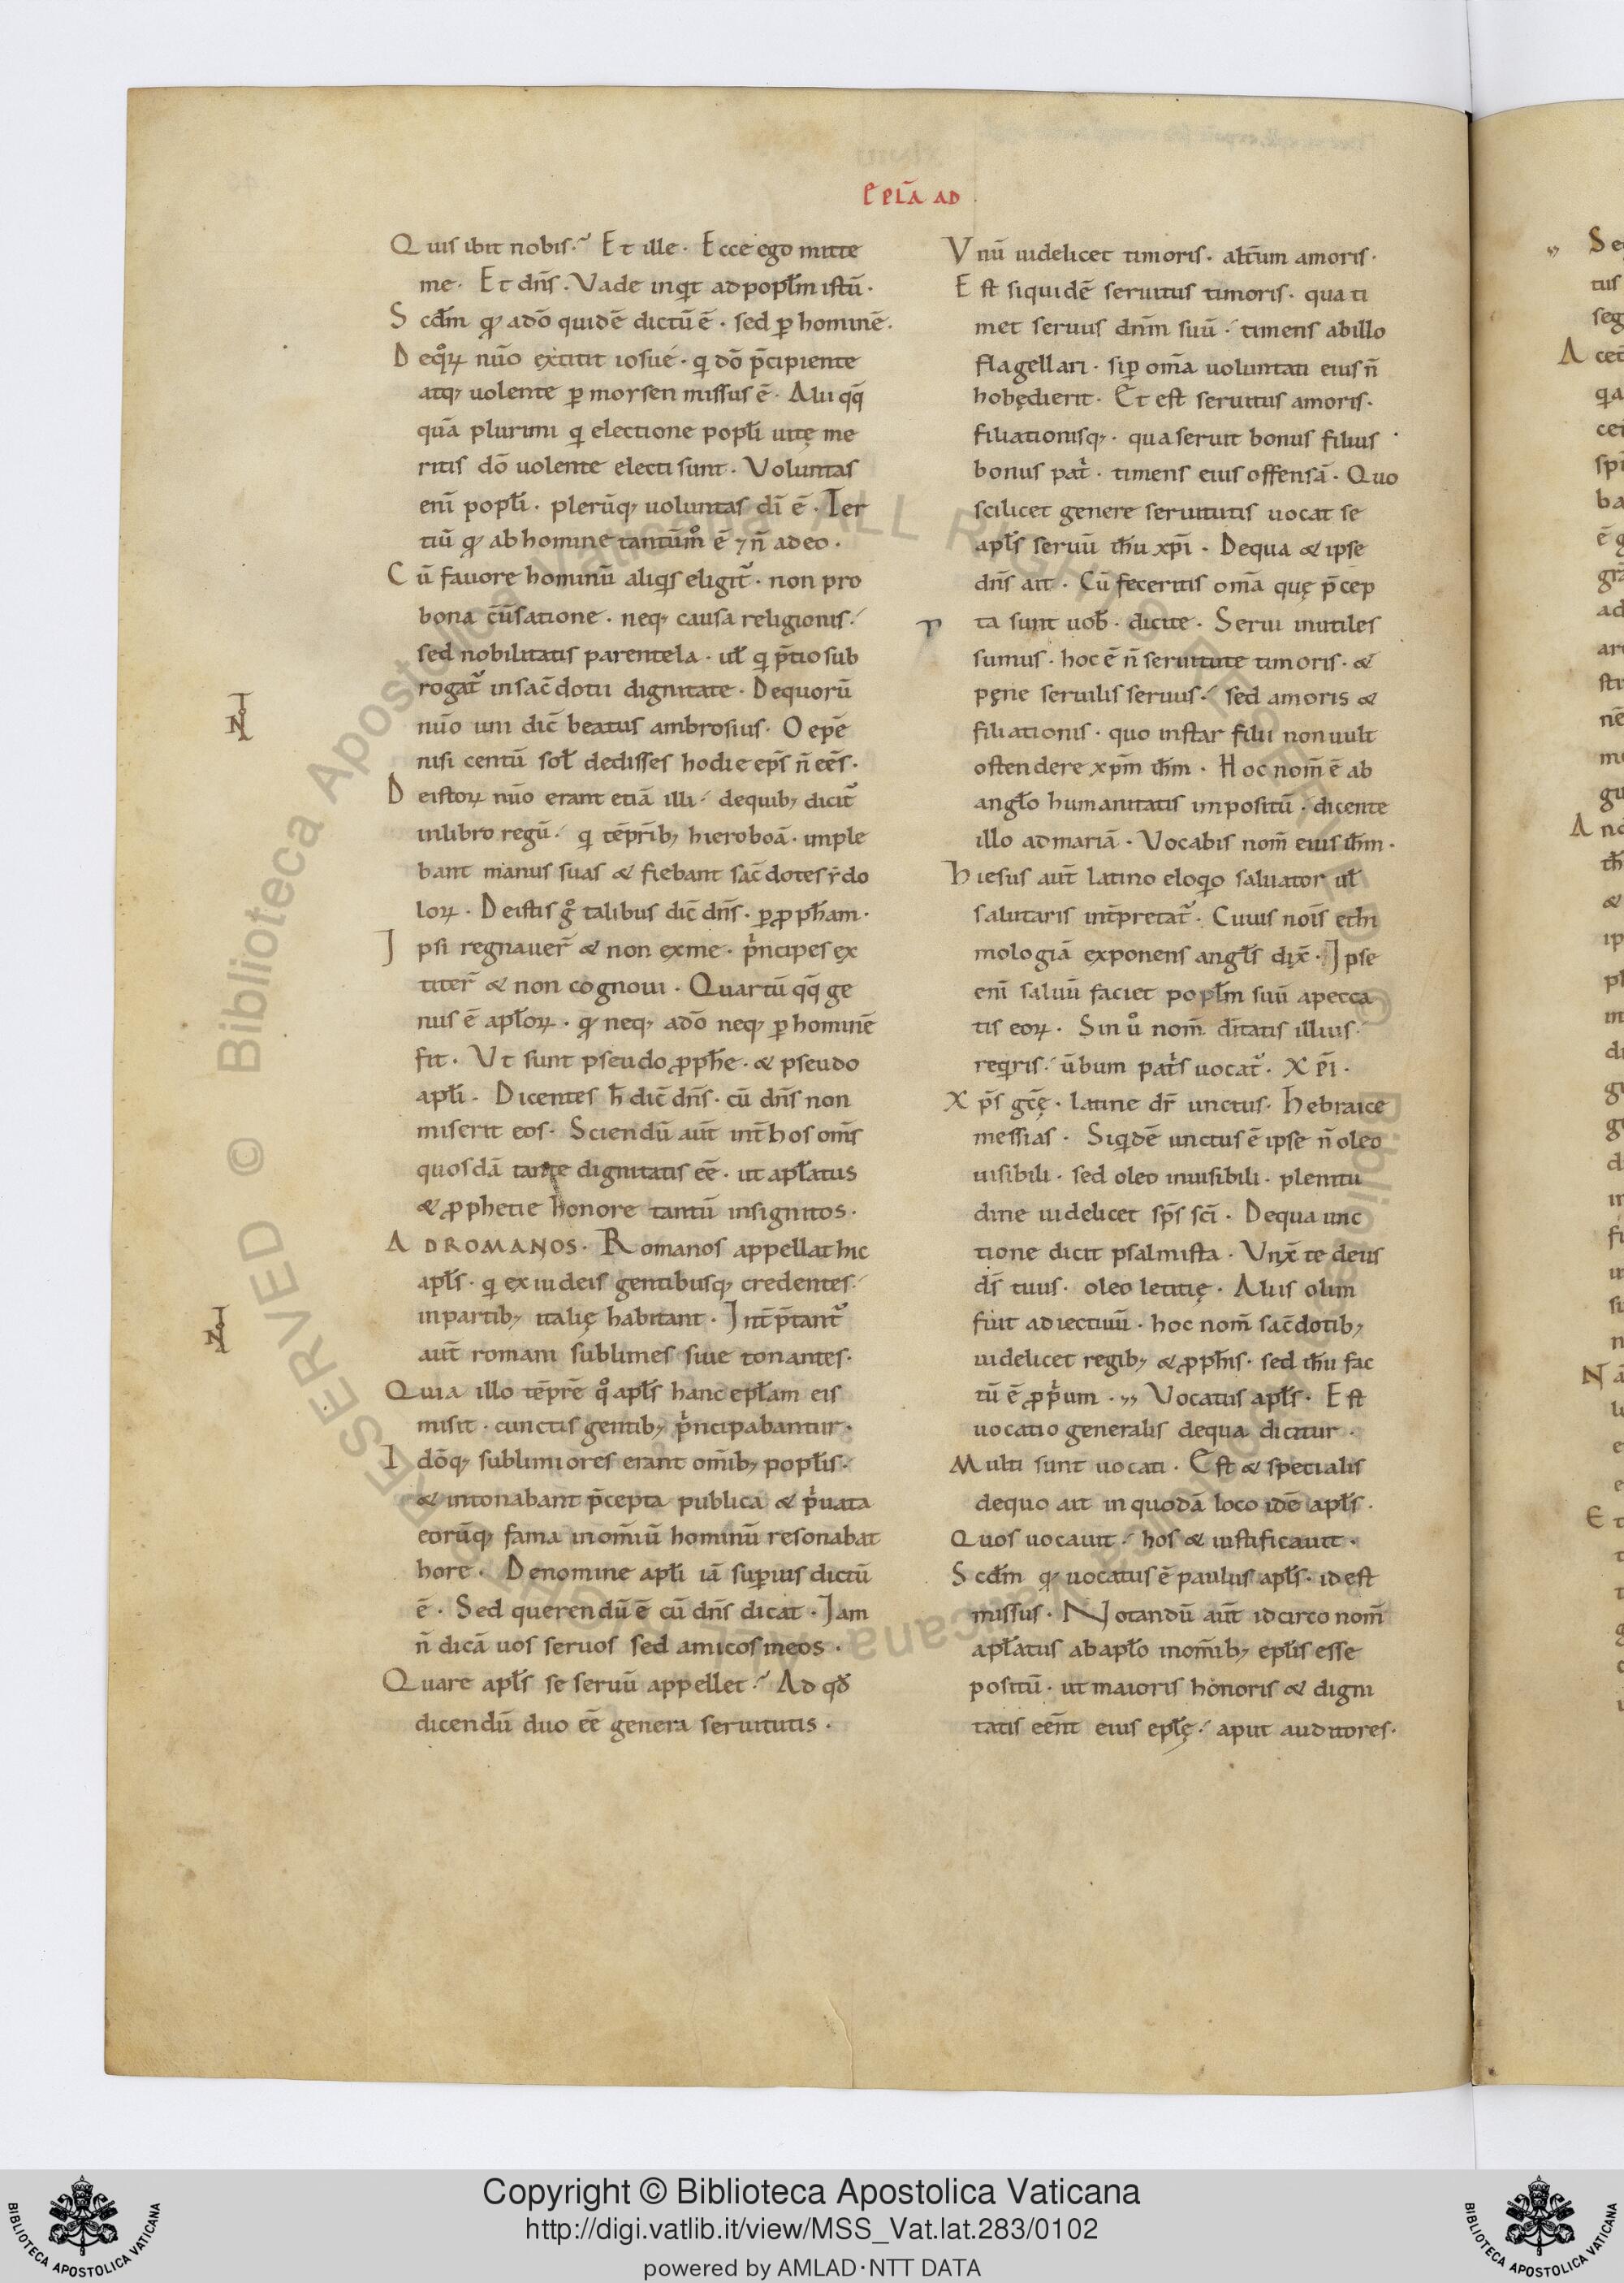 EPLA AD
Quis ibit nobis·́ Et ille· Ecce ego mitte
me· Et dn̄s· Vade inqt ad popl̄m istū·
Scd̄m qͥ a dō quidē dictū ē· sed ꝑ hominē·
De qͦꝝ nūo extitit iosué· q dō p̄cipiente
atqꝫ uolente ꝑ moysen missus ē· Alii qq̄
quā plurimi q electione popl̄i uitę me
ritis dō uolente electi sunt· Voluntas
eni̅ popl̄i· plerūqꝫ uoluntas di̅ ē· Ter
tiū qͥ ab homine tantūmͦ ē ⁊ n̄ a deo·
Cū fauore hominū aliqis eligit᷑· non pro
bona c̄ūsatione· neqꝫ causa religionis·́
sed nobilitatis parentela· ul̄ q p̄tio sub
rogat᷑ in sac̄dotii dignitate· De quorū
nūo uni dic̄ beatus ambrosius· O epē
nisi centū sol̄ dedisses hodie ep̄s n̄ eēs·
De istoꝝ nūo erant etiā illi·́ de quibꝫ dicit᷑
in libro regū·́ q tēpr̄ibꝫ hieroboā· imple
bant manus suas & fiebant sac̄dotes ẏdo
loꝝ· De istis gͦ talibus dic̄ dn̄s· ꝑ ꝓph̄am·
Ipsi regnauer̄ & non ex me· pͥncipes ex
titer̄ & non cognoui· Quartū qq̄ ge
nus ē apl̄oꝝ· qͥ neqꝫ a dō neqꝫ ꝑ hominē
fit· Vt sunt pseudo ꝓph̄e· & pseudo
apl̄i· Dicentes h̄ dic̄ dn̄s· cū dn̄s non
miserit eos· Sciendū aūt int̄ hos om̄s
quosdā tante dignitatis eē· ut apl̄atus
& ꝓphetie honore tantū insignitos·
AD ROMANOS· Romanos appellat hic
apl̄s· q ex iudeis gentibusqꝫ credentes·́
in partibꝫ italię habitant· Int̄p̄tant᷑
aūt romani sublimes siue tonantes·
Quia illo tēpr̄e qͦ apl̄s hanc epl̄am eis
misit· cunctis gentibꝫ pͥncipabantur·
Idōqꝫ sublimiores erant om̄ibꝫ popl̄is·́
& intonabant p̄cepta publica & pͥuata
eorūqꝫ fama in om̄iū hominū resonabat
hore· De nomine apl̄i iā suꝑius dictū
ē· Sed querendū ē cū dn̄s dicat· Iam
n̄ dicā uos seruos sed amicos meos·
Quare apl̄s se seruū appellet·́ Ad qd̄
dicendū duo eē genera seruitutis·
Vnū uidelicet timoris· alt̄um amoris·
Est siquidē seruitus timoris· qua ti
met seruus dn̄m suū·́ timens ab illo
flagellari· si ꝑ om̄a uoluntati eius n̄
hobędierit· Et est seruitus amoris·
filiationisqꝫ· qua seruit bonus filius
bonus pat̉· timens eius offensā· Quo
scilicet genere seruitutis uocat se
apl̄s seruū ih̄u xp̄i· De qua & ipse
dn̄s ait· Cū feceritis om̄a quę p̄cep
ta sunt uob̄· dicite· Serui inutiles
sumus· hoc ē n̄ seruitute timoris· &
pęne seruilis seruus·́ sed amoris &
filiationis· quo instar filii non uult
ostendere xp̄m ih̄m· Hoc nom̄ ē ab
angl̄o humanitatis impositū· dicente
illo ad mariā· Vocabis nom̄ eius ih̄m·
Hiesus aūt latino eloqio saluator ul̄
salutaris int̄pretat᷑· Cuius nōis ethi
mologiā exponens angl̄s dix̄· Ipse
eni̅ saluū faciet popl̄m suū a pecca
tis eoꝝ· Sin uͦ nom̄ dn̄tatis illius·
reqris·́ ūbum pat̉s uocat᷑· XP̄I·
Xp̄s gc̄ę· latine dr̄ unctus· Hebraice
messias· Siqidē unctus ē ipse n̄ oleo
uisibili· sed oleo inuisibili· plenitu
dine uidelicet sp̄s sc̄i· De qua unc
tione dicit psalmista· Vnx̄ te deus
ds̄ tuus· oleo letitię· Aliis olim
fuit adiectiuū· hoc nom̄ sac̄dotibꝫ
uidelicet regibꝫ & ꝓph̄is· sed ih̄u fac
tū ē ꝓpͥum· ,, Vocatus apl̄s· Est
uocatio generalis de qua dicitur·
Multi sunt uocati· Est & specialis
de quo ait in quodā loco idē apl̄s·
Quos uocauit·́ hos & iustificauit·
Scd̄m qͥ uocatus ē paulus apl̄s· id est
missus· Notandū aūt idcirco nom̄
apl̄atus ab apl̄o in om̄ibꝫ epl̄is esse
positū· ut maioris honoris & digni
tatis eēnt eius epl̄ę·́ aput auditores·
Copyright © Biblioteca Apostolica Vaticana
http://digi.vatlib.it/view/MSS_Vat.lat.283/0102
powered by AMLAD·NTT DATA
BIBLIOTECA APOSTOLICA VATICANA
BIBLIOTECA APOSTOLICA VATICANA